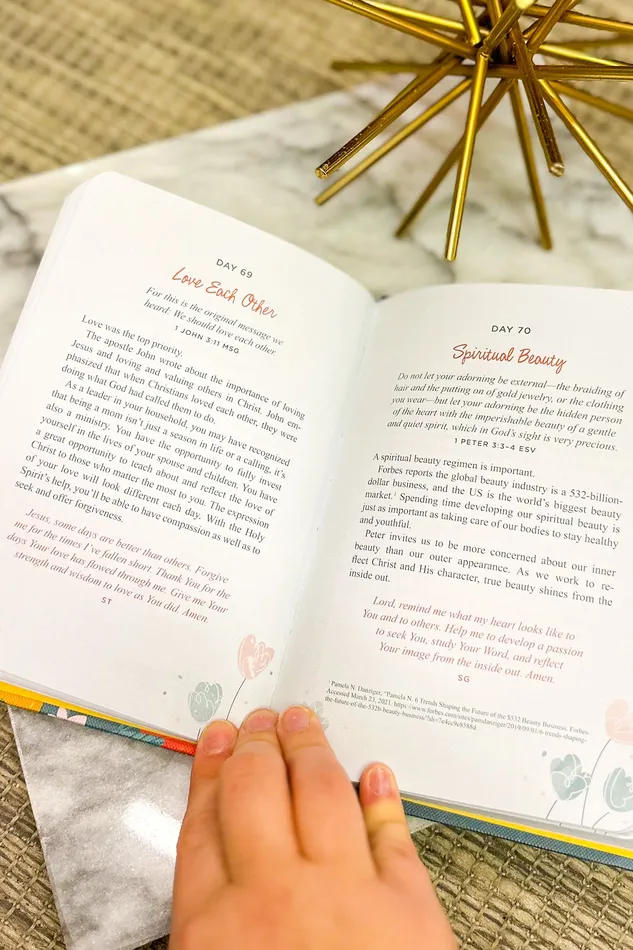 DAY 69
Love Each Other
For this is the original message we
heard: We should love each other.
1 JOHN 3:11 MSG
Love was the top priority.
The apostle John wrote about the importance of loving
Jesus and loving and valuing others in Christ. John em-
phasized that when Christians loved each other, they were
doing what God had called them to do.
As a leader in your household, you may have recognized
that being a mom isn't just a season in life or a calling, it's
also a ministry. You have the opportunity to fully invest
yourself in the lives of your spouse and children. You have
a great opportunity to teach about and reflect the love of
Christ to those who matter the most to you. The expression
of your love will look different each day. With the Holy
Spirit's help, you'll be able to have compassion as well as to
seek and offer forgiveness.
Jesus, some days are better than others. Forgive
me for the times I've fallen short. Thank You for the
days Your love has flowed through me. Give me Your
strength and wisdom to love as You did. Amen.
ST
DAY 70
Spiritual Beauty
Do not let your adorning be external—the braiding of
hair and the putting on of gold jewelry, or the clothing
you wear—but let your adorning be the hidden person
of the heart with the imperishable beauty of a gentle
and quiet spirit, which in God's sight is very precious.
1 PETER 3:3-4 ESV
A spiritual beauty regimen is important.
Forbes reports the global beauty industry is a 532-billion-
dollar business, and the US is the world's biggest beauty
market.¹ Spending time developing our spiritual beauty is
just as important as taking care of our bodies to stay healthy
and youthful.
Peter invites us to be more concerned about our inner
beauty than our outer appearance. As we work to re-
flect Christ and His character, true beauty shines from the
inside out.
Lord, remind me what my heart looks like to
You and to others. Help me to develop a passion
to seek You, study Your Word, and reflect
Your image from the inside out. Amen.
SG
¹ Pamela N. Danziger, "Pamela N. 6 Trends Shaping the Future of the $532 Beauty Business. Forbes.
Accessed March 23, 2021. https://www.forbes.com/sites/pamdanziger/2019/09/01/6-trends-shaping-
the-future-of-the-532b-beauty-business/?sh=